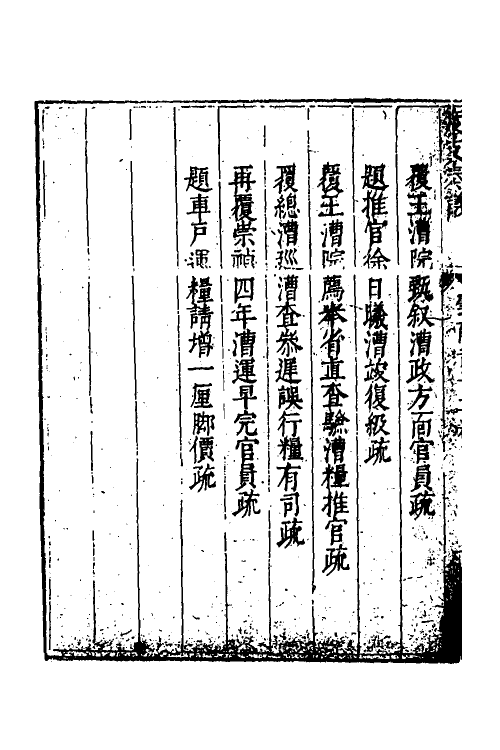 覆王漕院甄叙漕政方面官員疏
題推官徐日曦漕竣復級疏
覆王漕院薦舉省直查驗漕糧推官疏
覆總漕題漕查叅遲誤行糧有司疏
再覆崇禎四年漕運早完官員疏
題車戶運糧請增一厘脚價疏